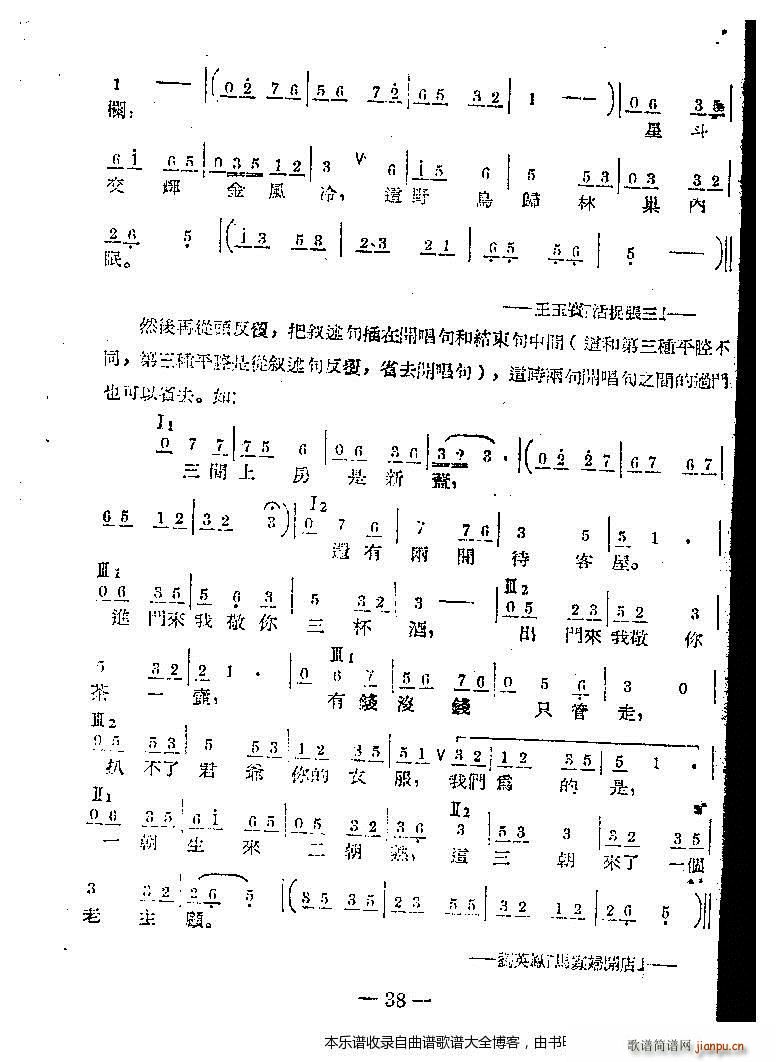 1 —— |( 0 2 7 6 | 5 6 7 2 | 6 5 3 2 | 1 —— )| 0 6 3 5 |
欄; 星 斗
6 i 6 5 | 0 3 5 1 2 | 3 V 6 | i 5 6 | 5 5 3 | 0 3 3 2 |
交 輝 金 風 冷, 這 野 鳥 歸 林 巢 內
2 6 5 |( i 3 5 3 | 2·3 2 1 | 6 5 5 6 | 5 —— )||
眠。
——王玉寶「活捉張三」——
然後再從頭反復, 把叙述句插在開唱句和結束句中間 ( 這和第三種平腔不
同, 第三種平腔是從叙述句反復, 省去開唱句 ), 這時兩句開唱句之間的過門
也可以省去。如:
I1
0 7 7 | 7 5 6 | 0 6 3 6 | 3 2 3 · |( 0 2 2 7 | 6 7 6 7 |
三 間 上 房 是 新 蓋,
6 5 1 2 | 3 2 3 )| I2 0 7 6 | 7 7 6 | 3 5 | 5 1 · |
還 有 兩 間 待 客 屋。
III1 III2
0 6 3 5 | 5 6 3 | 5 3 2 | 3 —— | 0 5 2 3 | 5 2 3 |
進 門 來 我 敬 你 三 杯 酒, 出 門 來 我 敬 你
5 3 2 | 2 1 · | III1 0 6 7 | 5 6 7 6 | 0 5 6 | 3 0 |
茶 一 壺, 有 錢 沒 錢 只 管 走,
III2
0 5 5 3 | 5 5 3 | 1 2 3 5 | 5 1 V 3 2 | 1 2 3 5 | 5 1 · |
扒 不 了 君 爺 你 的 衣 服, 我 們 爲 的 是,
II1 II2
0 6 3 5 | 6 i 6 5 | 0 5 3 2 | 3 6 3 | 5 3 3 | 3 2 3 5 |
一 朝 生 來 二 朝 熟, 這 三 朝 來 了 一 個
3 3 2 | 2 6 5 |( 3 5 3 5 | 2 3 5 5 | 3 2 1 2 | 2 6 5 )||
老 主 顧。
— 38 —
本乐谱收录自曲谱歌谱大全博客，由书
歌谱简谱网
jianpu.cn